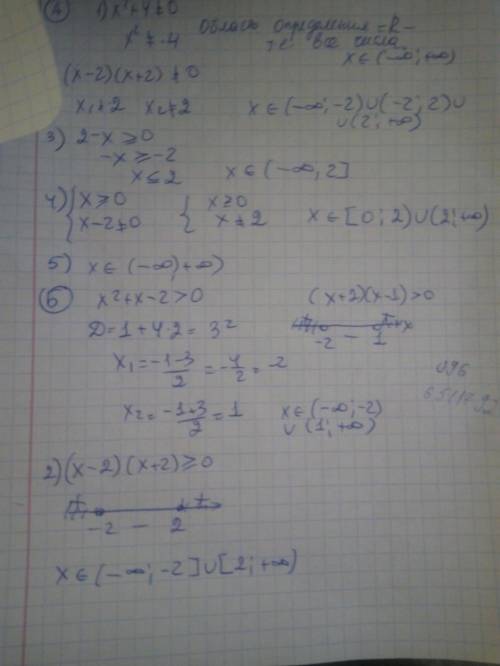 ④ 1) x²+4≠0
x² ≠ -4 Область определения -R-
т.е. все числа
x∈(-∞; +∞)
(x-2)(x+2)≠0
x₁≠2 x₂≠2 x∈(-∞; -2)∪(-2; 2)∪
∪(2; +∞)
3) 2-x⩾0
-x⩾-2
x≤2 x∈(-∞, 2]
4) { x⩾0 { x⩾0
{ x-2≠0 { x≠2 x∈[0; 2)∪(2; +∞)
5) x∈(-∞; +∞)
⑥ x²+x-2>0 (x+2)(x-1)>0
D=1+4·2=3² + + x
-2 - 1
x₁=(-1-3)/2=-4/2=-2
x₂=(-1+3)/2=1 x∈(-∞; -2)
∪(1; +∞)
2) (x-2)(x+2)≥0
+ +
-2 - 2
x∈(-∞; -2]∪[2; +∞)